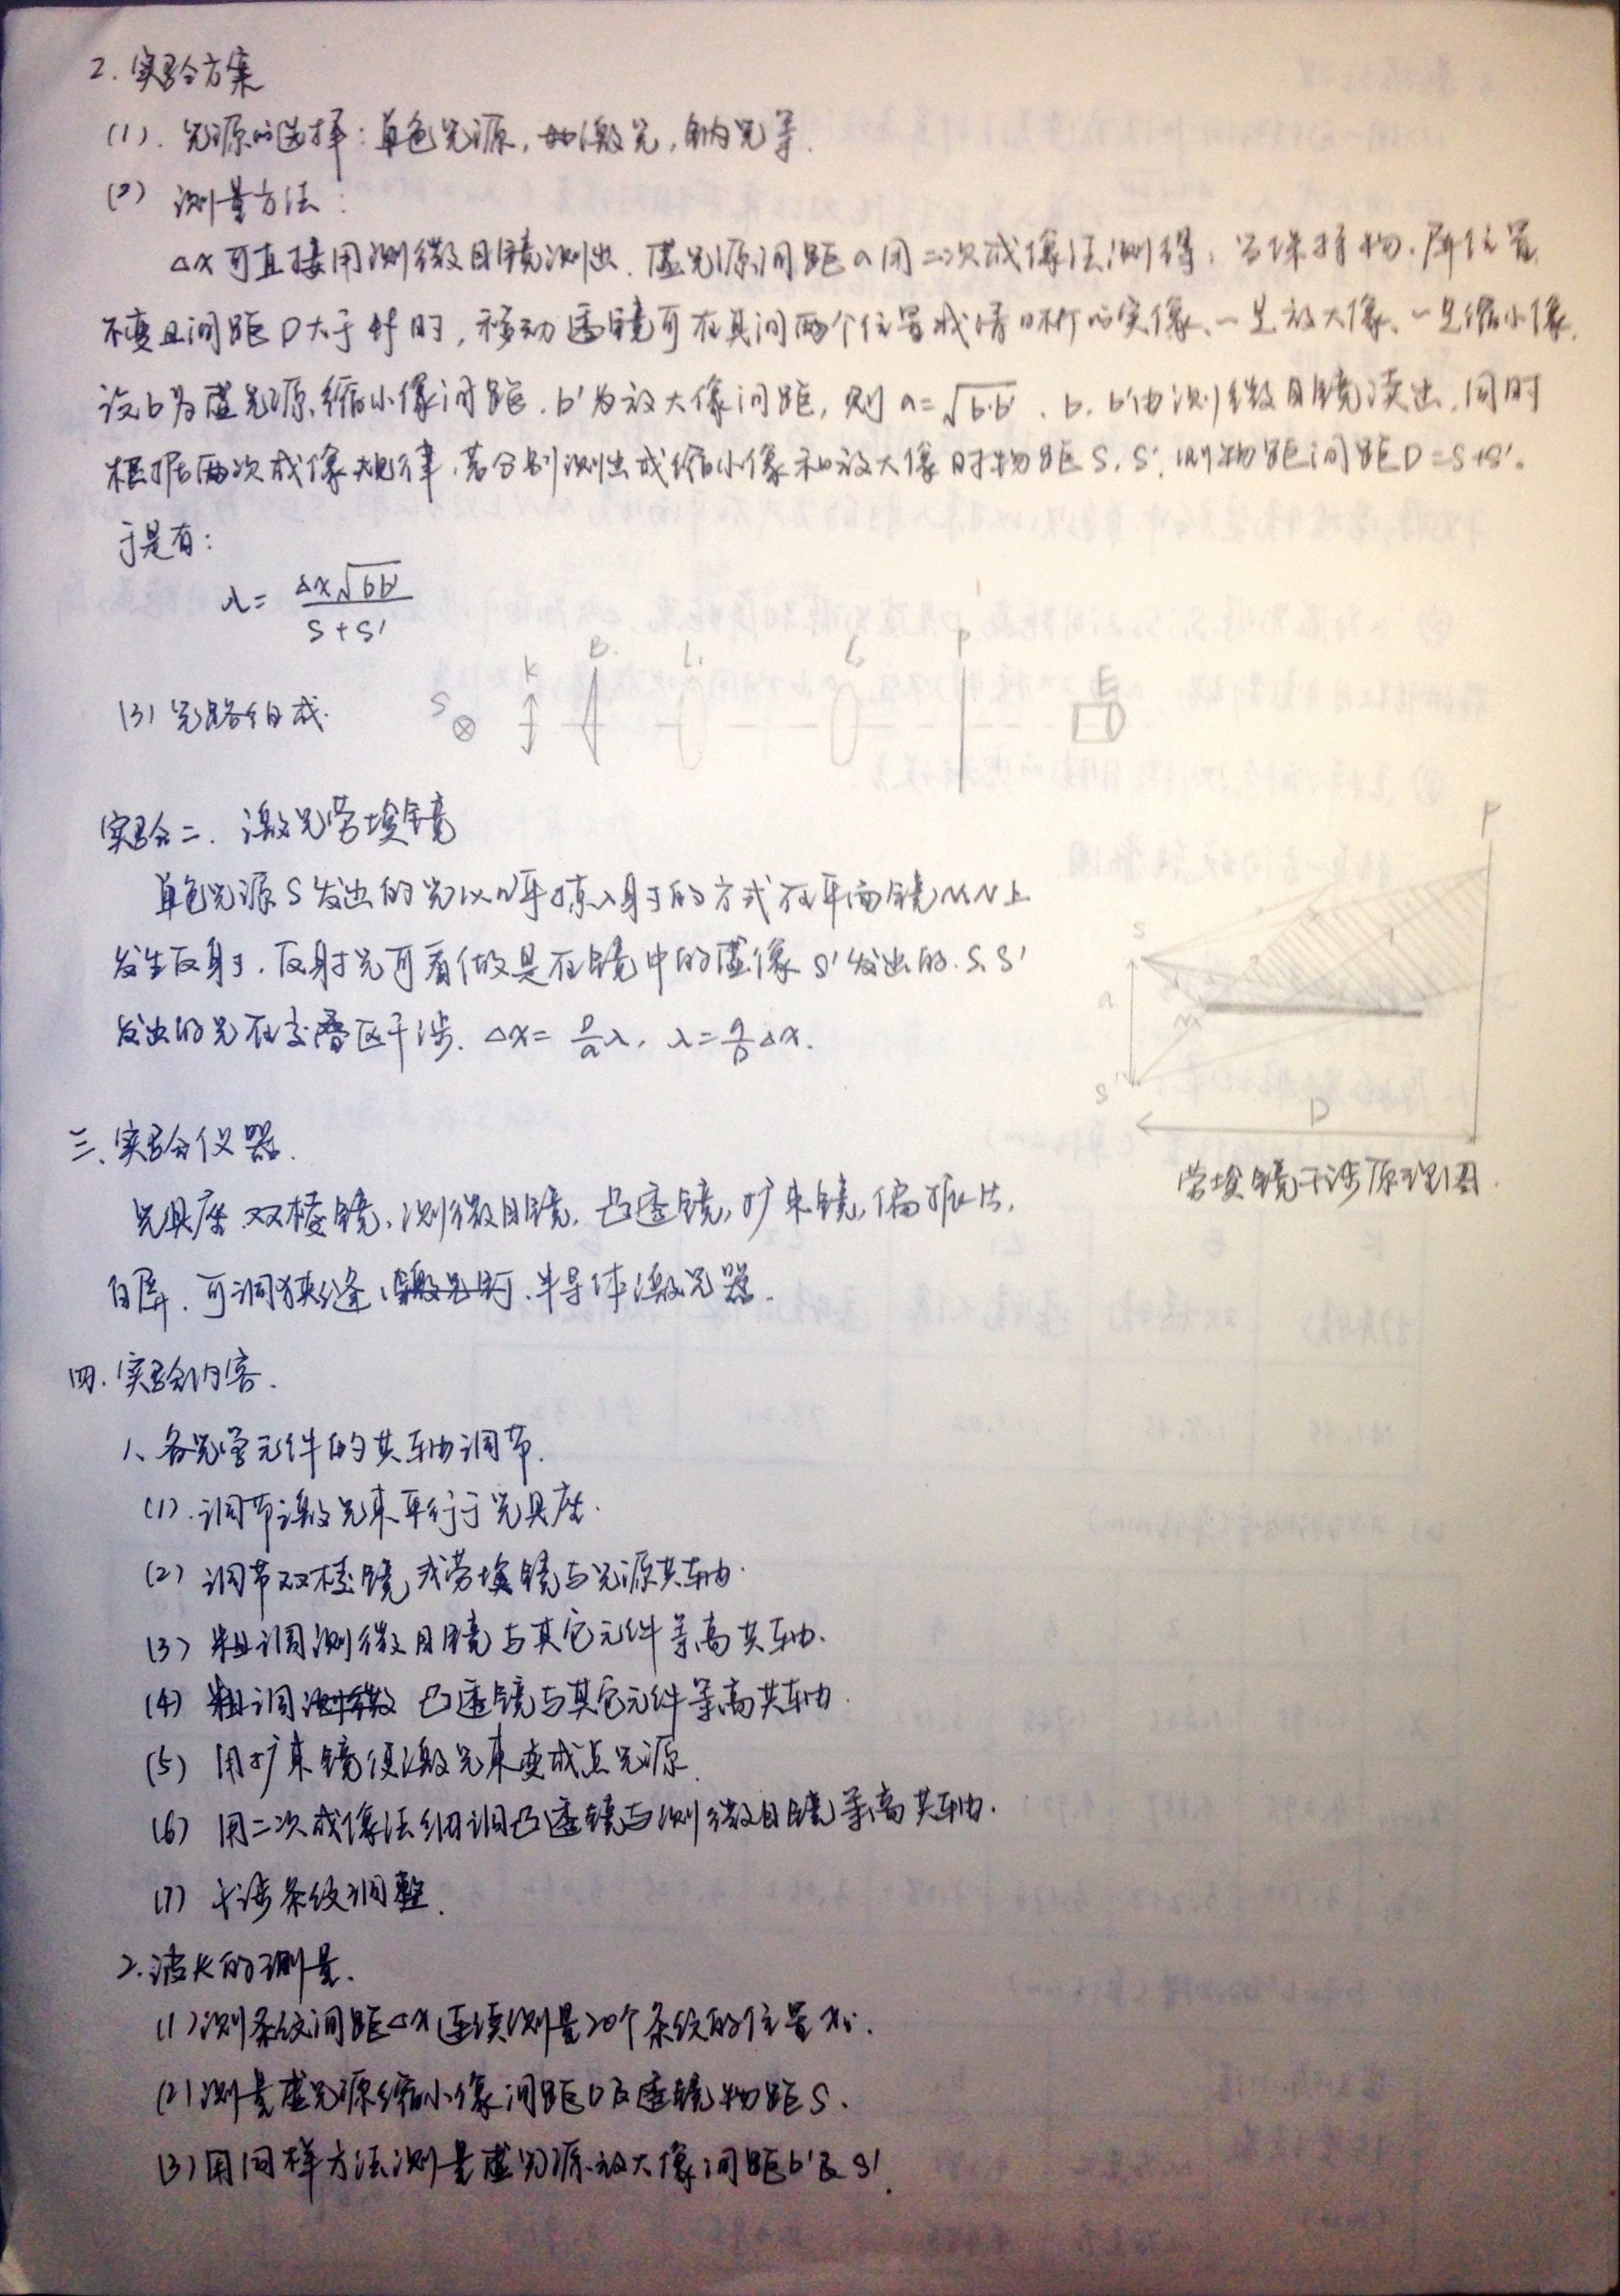 2. 实验方案
(1). 光源的选择: 单色光源, 如激光, 钠光等.
(2) 测量方法:
Δx可直接用测微目镜测出. 虚光源间距a用二次成像法测得, 当保持物、屏位置
不变且间距D大于4f时, 移动透镜可在其间两个位置成清晰的实像、一是放大像、一是缩小像.
设b为虚光源缩小像间距. b'为放大像间距, 则 a=√bb'. b. b'由测微目镜读出, 同时
根据两次成像规律, 若分别测出成缩小像和放大像时物距S, S', 则物距间距D=S+S'。
于是有:
λ= Δx√bb' / S+S'
(3) 光路组成.
S K B. L₁ L₂ P E
实验二. 激光劳埃镜
单色光源S发出的光以几乎掠入射的方式在平面镜MN上
发生反射, 反射光可看做是在镜中的虚像S'发出的. S、S'
发出的光在交叠区干涉. Δx= D/a λ, λ= a/D Δx.
P
S
a
M
S'
D
劳埃镜干涉原理图.
三、实验仪器.
光具座 双棱镜、测微目镜, 凸透镜, 扩束镜, 偏振片,
白屏, 可调狭缝, 半导体激光器.
四. 实验内容.
1、各光学元件的共轴调节.
(1). 调节激光束平行于光具座.
(2) 调节双棱镜或劳埃镜与光源共轴.
(3) 粗调测微目镜与其它元件等高共轴.
(4) 粗调测微 凸透镜与其它元件等高共轴.
(5) 用扩束镜使激光束变成点光源.
(6) 用二次成像法细调凸透镜与测微目镜等高共轴.
(7) 干涉条纹调整.
2. 波长的测量.
(1) 测条纹间距Δx 连续测量20个条纹的位置xᵢ.
(2) 测量虚光源缩小像间距b及透镜物距S.
(3) 用同样方法测量虚光源放大像间距b'及S'.